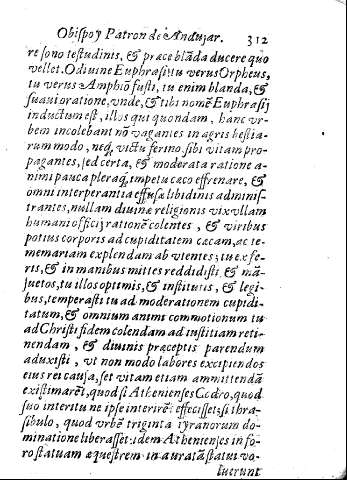 Obispo y Patron de Andujar. 312
re sono testudinis, & præce blāda ducere quo
vellet. O diuine Euphrasi! tu verus Orpheus,
tu verus Amphiō fusti, tu enim blanda, &
suaui oratione, vnde, & tibi nomē Euphrasij
inductum est, illos qui quondam, hanc vr-
bem incolebant nō vagantes in agris bestia-
rum modo, neq, victu ferino sibi vitam pro-
pagantes, sed certa, & moderata ratione a-
nimi pauca pleraq, impetu cæco effrenare, &
omni interperantia effusæ libidinis adminis-
trantes, nullam diuinæ religionis vix vllam
humani officij rationē colentes, & viribus
potius corporis ad cupiditatem cæcam, ac te-
memariam explendam ab vtentes; tu ex fe-
ris, & in manibus mittes reddidisti, & mā-
suetos, tu illos optimis, & institutis, & legi-
bus, temperasti tu ad moderationem cupidi-
tatum, & omnium animi commotionum tu
ad Christi fidem colendam ad iustitiam reti-
nendam, & diuinis præceptis parendum
aduxisti, vt non modo labores excipiendos
eius rei causa, set vitam etiam ammittendā
existimarēt, quod si Athenienses Codro, quod
suo interitu ne ipse interirēt effecisset; si thra-
sibulo, quod vrbē triginta tyranorum do-
minatione liberasset: idem Athenienses in fo-
ro statuam æquestrem in auratā statut vo-
luerunt